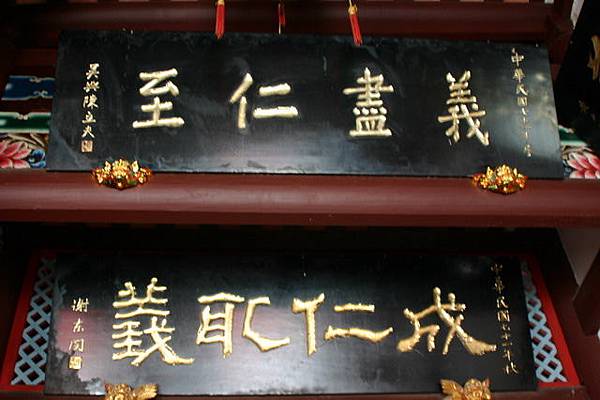 中華民國七十
義盡仁至
吳興陳立夫
中華民國六十一年
成仁取義
謝東閔